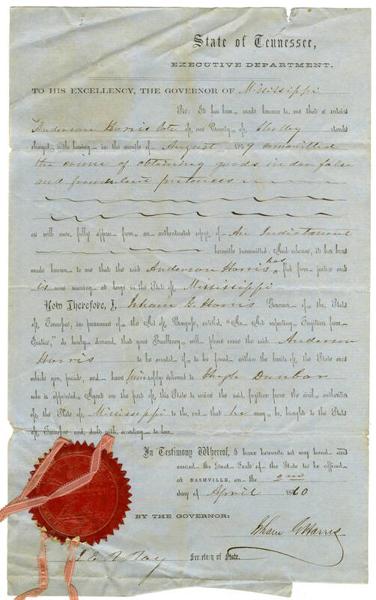 State of Tennessee,
EXECUTIVE DEPARTMENT.
TO HIS EXCELLENCY, THE GOVERNOR OF Mississippi
Sir: It has been made known to me that a certain
Anderson Harris late of our County of Shelby stands
charged with having in the month of August 1859 committed
the crime of obtaining goods under false
and fraudulent pretences
as will more fully appear from an authenticated copy of An Indictment
herewith transmitted. And whereas, it has been
made known to me that the said Anderson Harris has fled from justice and
is now running at large in the State of Mississippi
Now Therefore, I, Isham G. Harris Governor of the State
of Tennessee, in pursuance of the Act of Congress, entitled "An Act respecting Fugitives from
Justice," do hereby demand that your Excellency will please cause the said Anderson
Harris to be arrested if to be found within the limits of the State over
which you preside, and have him safely delivered to Hugh Dunbar
who is appointed Agent on the part of this State to receive the said fugitive from the civil authorities
of the State of Mississippi to the end that he may be brought to the State
of Tennessee and dealt with according to law.
In Testimony Whereof, I have hereunto set my hand and
caused the Great Seal of the State to be affixed
at NASHVILLE, on the 2nd
day of April 1860
BY THE GOVERNOR:
Isham G Harris
Ray
Secretary of State.